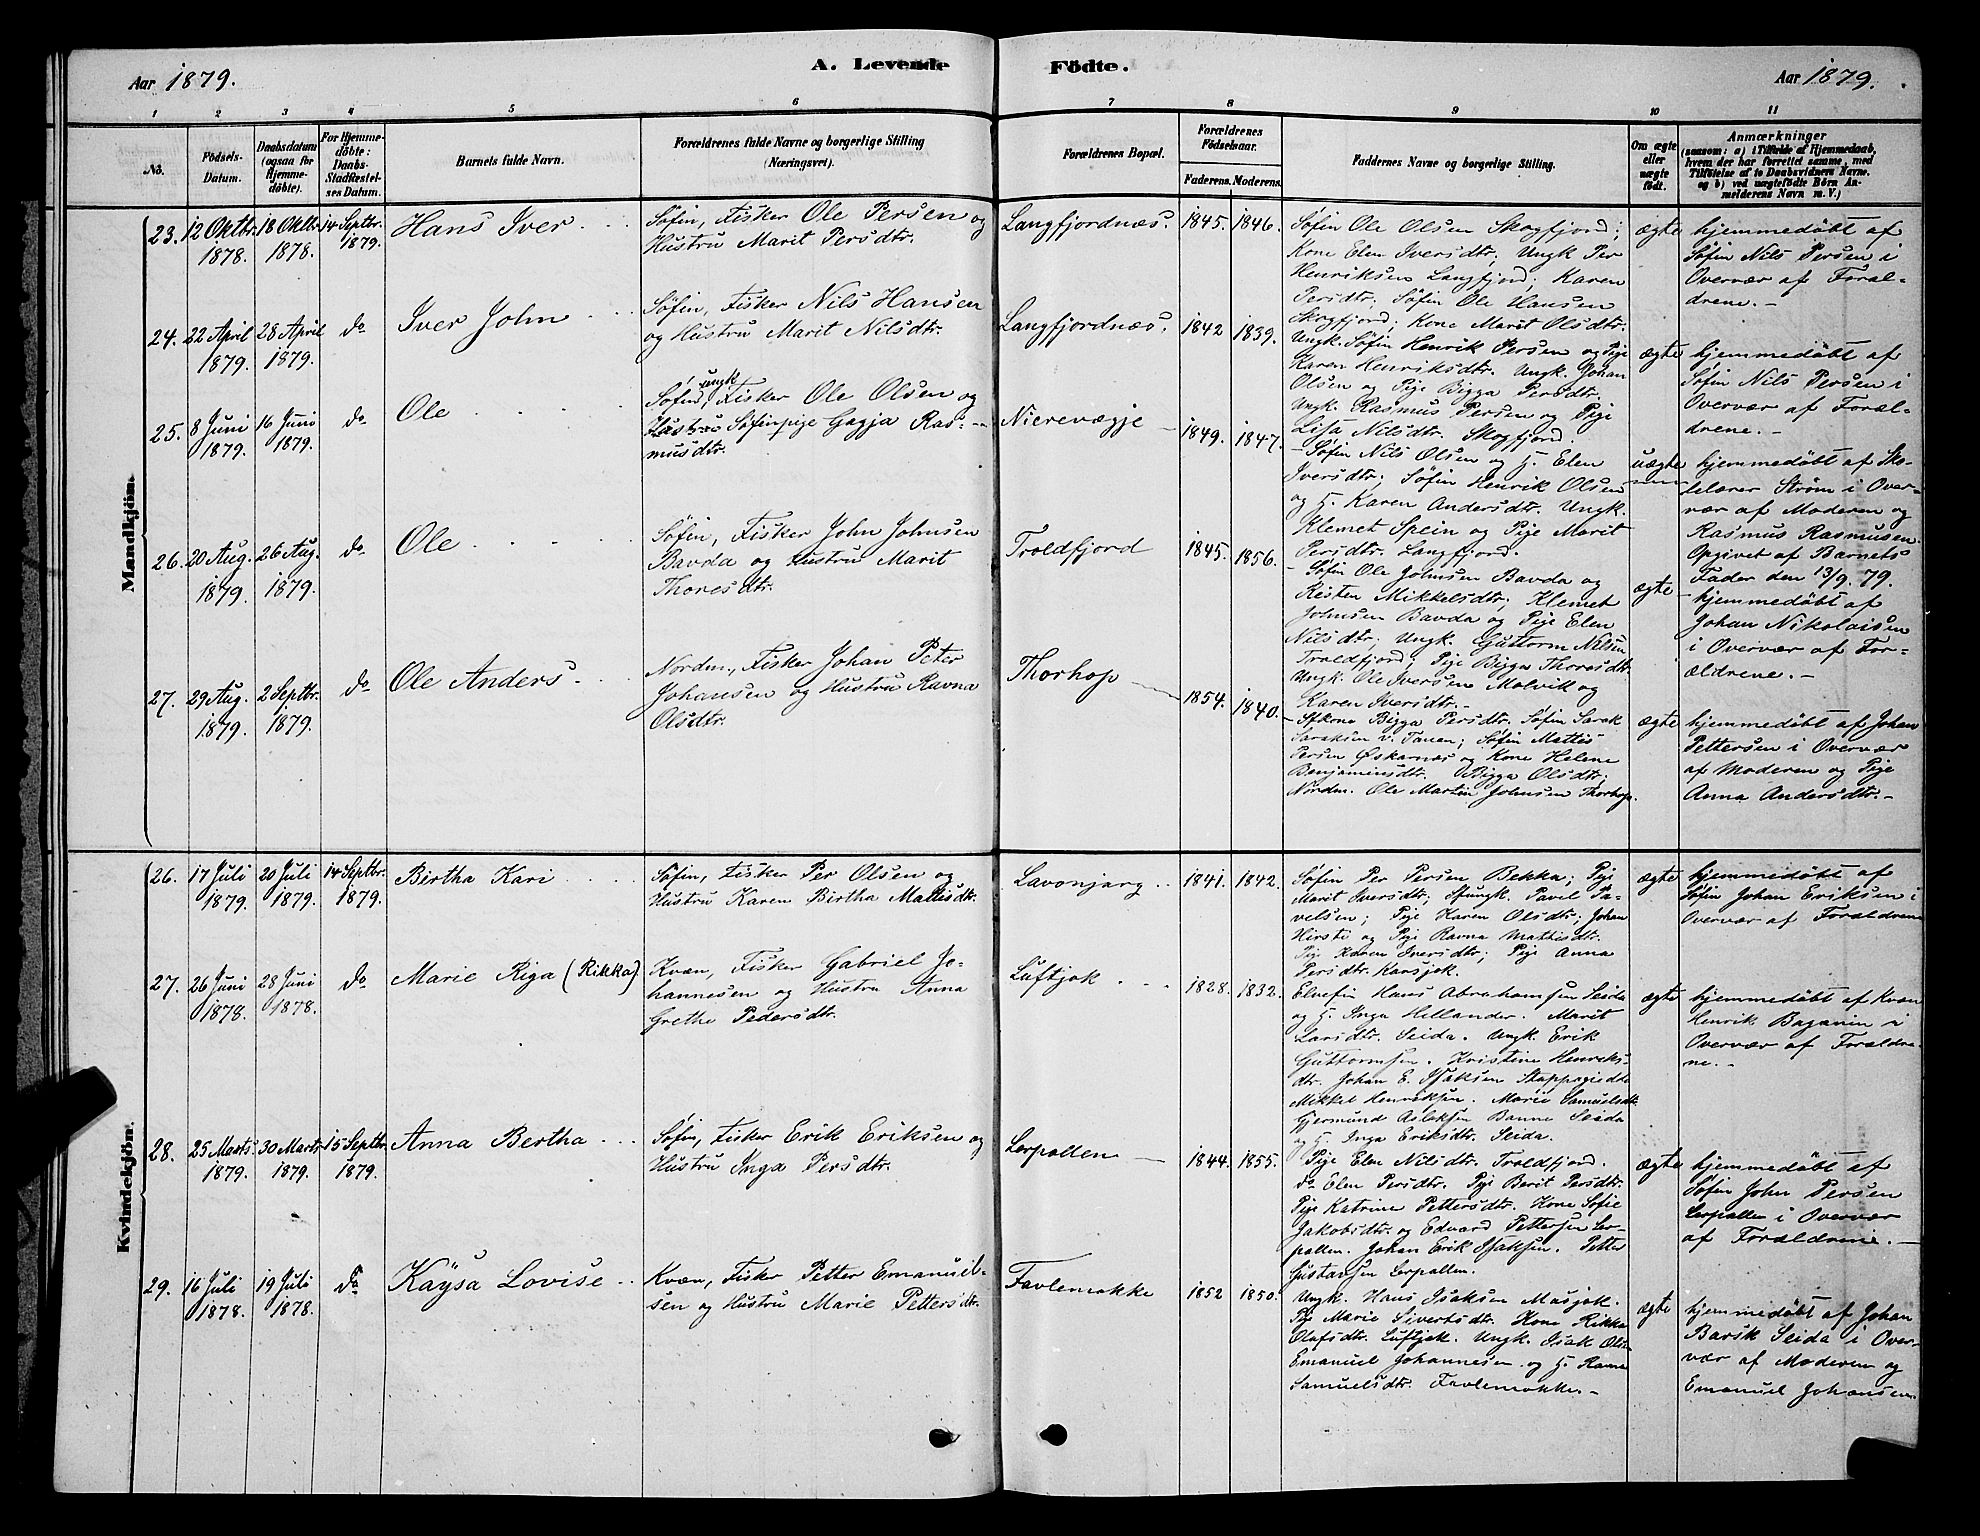 Aar 1879.
A. Levende
Födte.
Aar 1879.
1 2 3 4 5 6 7 8 9 10 11
No.
Födsels-
Datum.
Daabsdatum
(ogsaa for
Hjemme-
döbte).
For Hjemme-
döbte:
Daabs-
Stadfæstel-
ses Datum.
Barnets fulde Navn.
Forældrenes fulde Navne og borgerlige Stilling
(Næringsvei).
Forældrenes Bopæl.
Forældrenes
Födselsaar.
Faderens. Moderens.
Faddernes Navne og borgerlige Stilling.
Om ægte
eller
uægte
födt.
Anmærkninger
(saasom: a) i Tilfælde af Hjemmedaab,
hvem der har forrettet samme, med
Tilföielse af to Daabsvidners Navne,
og b) ved uægtefödte Börn An-
melderens Navn m. V.)
Mandkjön.
23.
12 Oktbr.
1878.
18 Oktbr.
1878.
14 Septbr.
1879.
Hans Iver
Søfin, Fisker Ole Persen og
Hustru Marit Persdtr.
Langfjordnæs.
1845.
1846.
Søfin Ole Olsen Skogfjord;
Kone Elen Iversdtr; Ungk Per
Henriksen Langfjord; Karen
Persdtr. Søfin Ole Hansen
Skogfjord; Kone Marit Olsdtr.
ægte
hjemmedøbt af
Søfin Nils Persen i
Overvær af Foræl-
drene. -
24.
22 April
1879.
28 April
1879.
do
Iver John
Søfin, Fisker Nils Hansen
og Hustru Marit Nilsdtr.
Langfjordnæs.
1842
1839.
Ungk. Søfin Henrik Persen og Pige
Karen Henriksdtr. Ungk. Johan
Olsen og Pige Bigga Persdtr.
Ungk. Rasmus Persen og Pige
Lisa Nilsdtr. Skogfjord.
ægte
hjemmedøbt af
Søfin Nils Persen i
Overvær af Foræl-
drene. -
25.
8 Juni
1879.
16 Juni
1879.
do
Ole
ungk
Søfin, Fisker Ole Olsen og
Hustru Søfinpige Gagja Ras-
musdtr.
Nierevægje
1849.
1847.
- Søfin Nils Olsen og H. Elen
Iversdtr; Søfin Henrik Olsen
og H. Karen Andersdtr. Ungk.
Klemet Spein og Pige Marit
Persdtr. Langfjord.
uægte
hjemmedøbt af Sko-
lelærer Strøm i Over-
vær af Moderen og
Rasmus Rasmusen.
Opgivet af Barnets
Fader den 13/9. 79.
26.
20 Aug.
1879.
26 Aug.
1879.
do
Ole
Søfin, Fisker John Johnsen
Bavda og Hustru Marit
Thoresdtr.
Troldfjord
1845.
1856.
- Søfin Ole Johnsen Bavda og
Resten Mikkelsdtr; Klemet
Johnsen Bavda og Pige Elen
Nilsdtr; Ungk. Guttorm Nilsen
Troldfjord; Pige Bigga Thoresdtr.
Ungk. Ole Iversen Molvik og
Karen Iversdtr. -
ægte
hjemmedøbt af
Johan Nikolaisen
i Overvær af For-
ældrene. -
27.
29 Aug.
1879.
2 Septbr.
1879.
do
Ole Anders
Nordm., Fisker Johan Peter
Johansen og Hustru Ravna
Olsdtr.
Thorhop
1854.
1840.
- Sfkone Bigga Persdtr. Søfin Sarak
Saraksen v. Tanen; Søfin Mattis
Persen Øskarnæs og Kone Helene
Benjaminsdtr. Bigga Olsdtr;
Nordm. Ole Martin Johnsen Thorhop.
ægte
hjemmedøbt af Johan
Pettersen i Overvær
af Moderen og Pige
Anna Andersdtr. -
Kvindekjön.
26.
17 Juli
1879.
20 Juli
1879.
14 Septbr.
1879.
Birtha Kari
Søfin, Fisker Per Olsen og
Hustru Karen Birtha Mattisdtr.
Lavonjarg
1841.
1842.
Søfin Per Persen Bekka; Pige
Marit Iversdtr; Sfungk. Pavel Pa-
velsen; Pige Karen Olsdtr; Johan
Hirsti og Pige Ravna Mathisdtr.
Pige Karen Iversdtr; Pige Anna
Persdtr. Karsjok.
ægte
hjemmedøbt af
Søfin Johan Eriksen i
Overvær af Forældrene
27.
26 Juni
1878.
28 Juni
1878.
do
Marie Riga (Rikka)
Kvæn, Fisker Gabriel Jo-
hannesen og Hustru Anna
Grethe Pedersdtr.
Luftjok
1828.
1832.
Elvefin Hans Abrahamsen Seida
og H. Inga Hellander. Marit
Larsdtr. Seida. Ungk. Erik
Guttormsen. Kristine Henriks-
dtr. Johan E. Isaksen Stappogiedde
Mikkel Henriksen. Marie Samuelsdtr.
Gjermund Aslaksen Banne Seida
og H. Inga Eriksdtr. Seida.
ægte
hjemmedøbt af Kvæn
Henrik Baganin i
Overvær af Forældre-
ne. -
28.
25 Marts
1879.
30 Marts
1879.
15 Septbr.
1879.
Anna Bertha
Søfin, Fisker Erik Eriksen og
Hustru Inga Persdtr.
Lerpollen
1844.
1855.
Pige Elen Nilsdtr. Troldfjord.
do Elen Persdtr. Pige Berit Persdtr.
Pige Katrine Pettersdtr. Kone Sofie
Jakobsdtr. og Edvard Pettersen Ler-
pollen. Johan Erik Isaksen. Petter
Gustavsen Lerpollen.
ægte
hjemmedøbt af
Søfin John Persen
Lerpollen i Overvær
af Forældrene. -
29.
16 Juli
1878.
19 Juli
1878.
do
Kaÿsa Lovise
Kvæn, Fisker Petter Emanuel-
sen og Hustru Marie Pettersdtr.
Favlemokke
1852
1850.
Ungk. Hans Isaksen Masjok.
Pige Marie Sivertsdtr. Kone Rikka
Olafsdtr. Luftjok. Ungk. Isak Olsen
Emanuel Johannesen og H. Ravna
Samuelsdtr. Favlemokke. -
ægte
hjemmedøbt af Johan
Barsk Seida i Over-
vær af Moderen og
Emanuel Johansen.